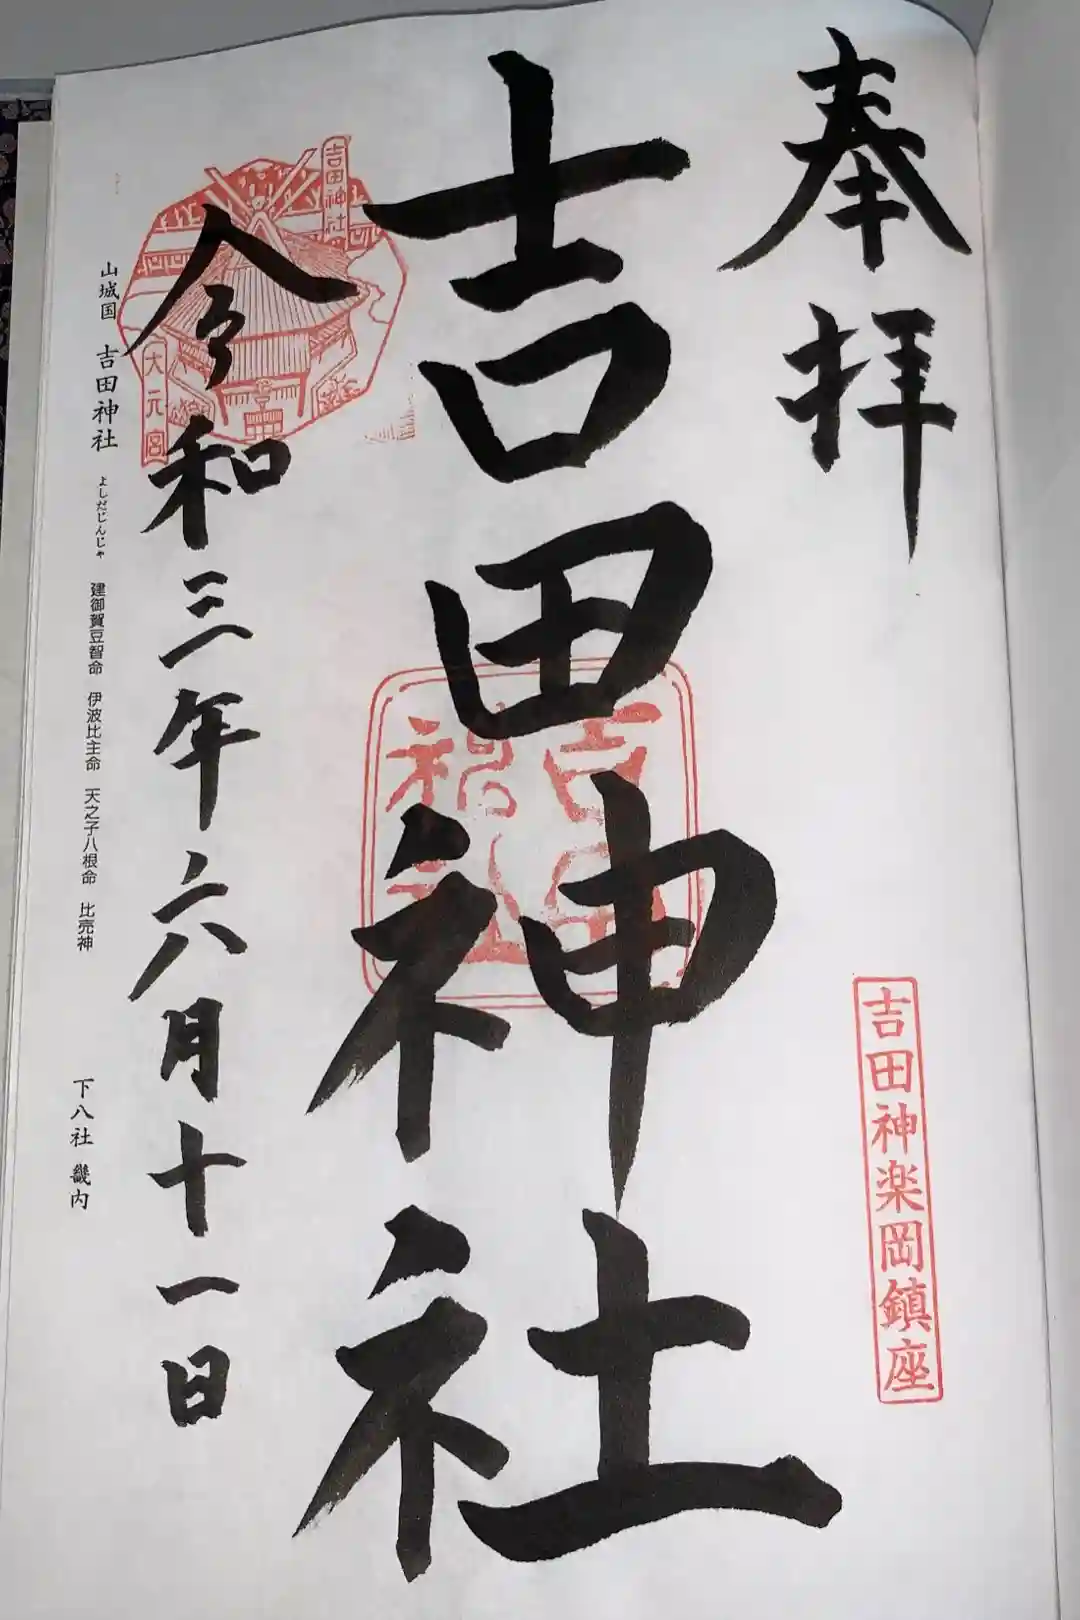 奉拝
吉田神楽岡鎮座
吉田神社
吉田神社
吉田神社
大元宮
令和三年六月十一日
山城国 吉田神社 よしだじんじゃ 建御賀豆智命 伊波比主命 天之子八根命 比売神 下八社 畿内